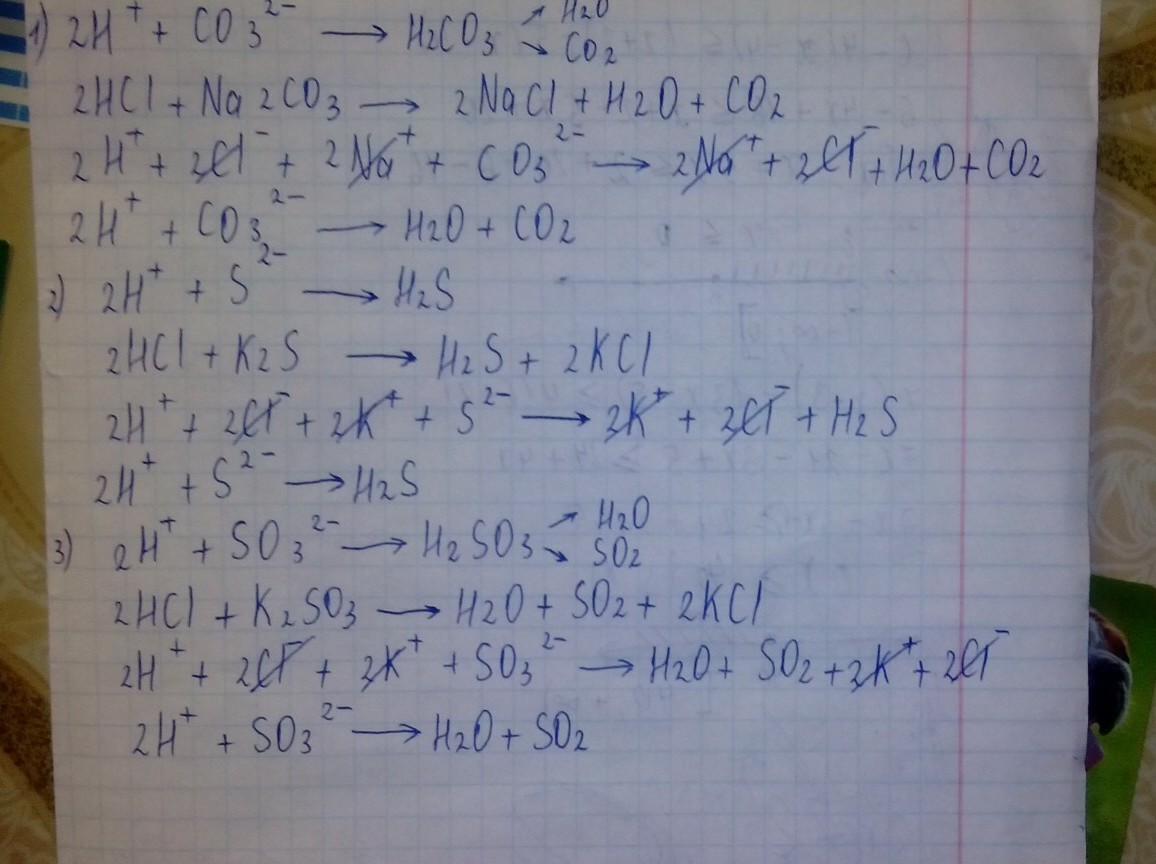 1) 2H⁺ + CO₃²⁻ → H₂CO₃ ↗ H₂O ↘ CO₂
2HCl + Na₂CO₃ → 2NaCl + H₂O + CO₂
2H⁺ + 2Cl⁻ + 2Na⁺ + CO₃²⁻ → 2Na⁺ + 2Cl⁻ + H₂O + CO₂
2H⁺ + CO₃²⁻ → H₂O + CO₂
2) 2H⁺ + S²⁻ → H₂S
2HCl + K₂S → H₂S + 2KCl
2H⁺ + 2Cl⁻ + 2K⁺ + S²⁻ → 2K⁺ + 2Cl⁻ + H₂S
2H⁺ + S²⁻ → H₂S
3) 2H⁺ + SO₃²⁻ → H₂SO₃ ↗ H₂O ↘ SO₂
2HCl + K₂SO₃ → H₂O + SO₂ + 2KCl
2H⁺ + 2Cl⁻ + 2K⁺ + SO₃²⁻ → H₂O + SO₂ + 2K⁺ + 2Cl⁻
2H⁺ + SO₃²⁻ → H₂O + SO₂